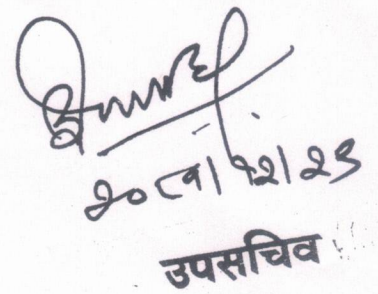 २०८१|१२|२९
उपसचिव